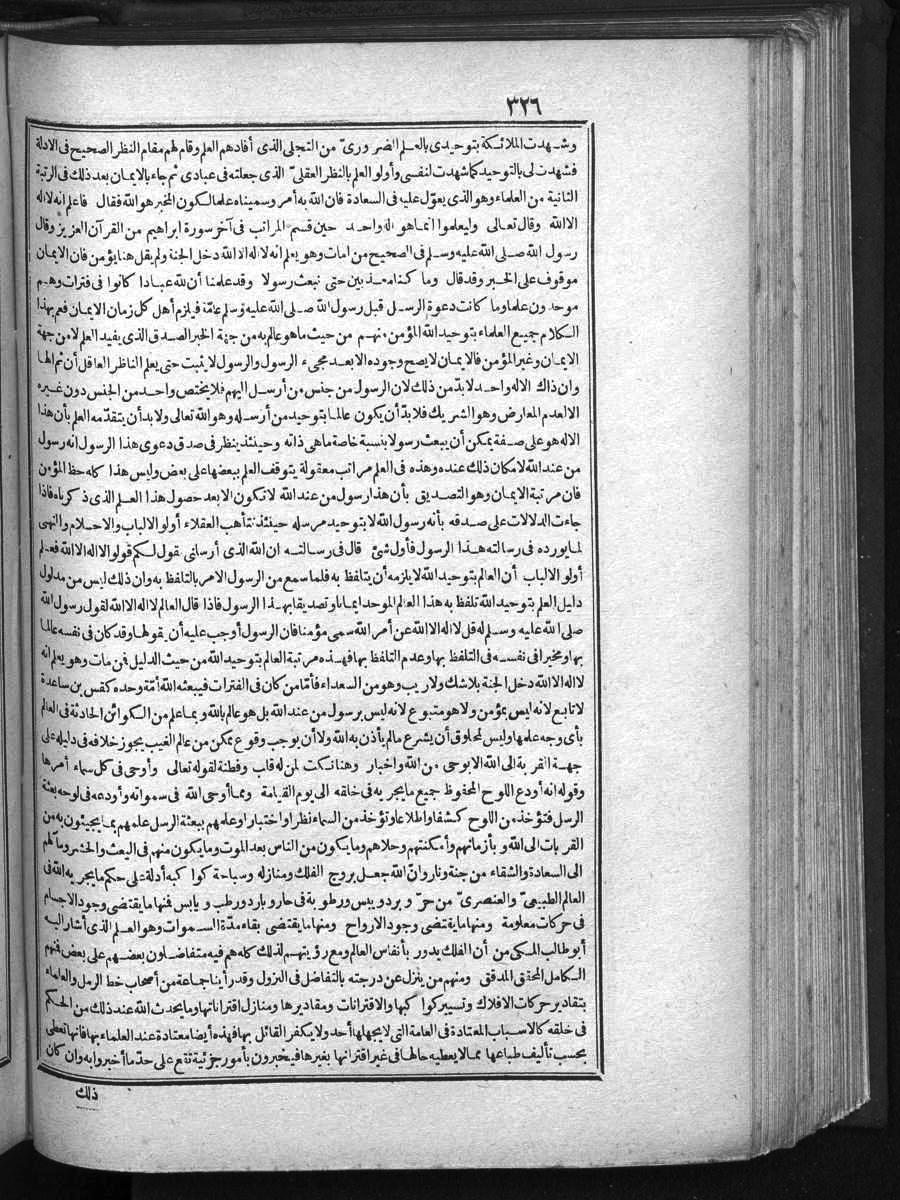 ٣٢٦
وشهدت الملائكة بتوحيدى بالعلم الضرورىّ من التجلى الذى أفادهم العلم وقام لهم مقام النظر الصحيح فى الادلة
فشهدت لى بالتوحيد كما شهدت لنفسى وأولو العلم بالنظر العقلىّ الذى جعلته فى عبادى ثم جاء بالايمان بعد ذلك فى الرتبة
الثانية من العلماء وهو الذى يعوّل عليه فى السعادة فان الله به أمر وسميناه علما لكون المخبر هو الله فقال فاعلم انه لا اله
الا الله وقال تعالى وليعلموا انما هو اله واحد حين قسم المراتب فى آخر سورة ابراهيم من القرآن العزيز وقال
رسول الله صلى الله عليه وسلم فى الصحيح من مات وهو يعلم انه لا اله الا الله دخل الجنة ولم يقل هنا يؤمن فان الايمان
موقوف على الخبر وقد قال وما كنا معذبين حتى نبعث رسولا وقد علمنا أن لله عبادا كانوا فى فترات وهم
موحدون علما وما كانت دعوة الرسل قبل رسول الله صلى الله عليه وسلم عامّة فيلزم أهل كل زمان الايمان فعم بهذا
الكلام جميع العلماء بتوحيد الله المؤمن منهم من حيث ما هو عالم به من جهة الخبر الصدق الذى يفيد العلم لا من جهة
الايمان وغير المؤمن فالايمان لا يصح وجوده الا بعد مجىء الرسول والرسول لا يثبت حتى يعلم الناظر العاقل أن ثم الها
وان ذاك الاله واحد لا بدّ من ذلك لان الرسول من جنس من أرسل اليهم فلا يختص واحد من الجنس دون غيره
الا لعدم المعارض وهو الشريك فلا بدّ أن يكون عالما بتوحيد من أرسله وهو الله تعالى ولا بد أن يتقدّمه العلم بأن هذا
الاله هو على صفة يمكن أن يبعث رسولا بنسبة خاصة ما هى ذاته وحينئذ ينظر فى صدق دعوى هذا الرسول انه رسول
من عند الله لامكان ذلك عنده وهذه فى العلم مراتب معقولة يتوقف العلم ببعضها على بعض وليس هذا كله حظ المؤمن
فان مرتبة الايمان وهو التصديق بأن هذا رسول من عند الله لا تكون الا بعد حصول هذا العلم الذى ذكرناه فاذا
جاءت الدلالات على صدقه بأنه رسول الله لا بتوحيد مرسله حينئذ تتأهب العقلاء أولو الالباب والاحلام والنهى
لما يورده فى رسالته هذا الرسول فأول شئ قال فى رسالته ان الله الذى أرسلنى يقول لكم قولوا لا اله الا الله فعلم
أولو الالباب أن العالم بتوحيد الله لا يلزمه أن يتلفظ به فلما سمع من الرسول الامر بالتلفظ به وان ذلك ليس من مدلول
دليل العلم بتوحيد الله تلفظ به هذا العالم الموحد ايمانا وتصديقا بهذا الرسول فاذا قال العالم لا اله الا الله لقول رسول الله
صلى الله عليه وسلم له قل لا اله الا الله عن أمر الله سمى مؤمنا فان الرسول أوجب عليه أن يقولها وقد كان فى نفسه عالما
بها ومخيرا فى نفسه فى التلفظ بها وعدم التلفظ بها فهذه مرتبة العالم بتوحيد الله من حيث الدليل فمن مات وهو يعلم انه
لا اله الا الله دخل الجنة بلا شك ولا ريب وهو من السعداء فأمّا من كان فى الفترات فيبعثه الله أمّة وحده كقس بن ساعدة
لا تابع لانه ليس بمؤمن ولا هو متبوع لانه ليس برسول من عند الله بل هو عالم بالله وبما علم من الكوائن الحادثة فى العالم
بأى وجه علمها وليس لمخلوق أن يشرع ما لم يأذن به الله ولا أن يوجب وقوع ممكن من عالم الغيب يجوز خلافه فى دليله على
جهة القربة الى الله الا بوحى من الله واخبار وهنا نكت لمن له قلب وفطنة لقوله تعالى وأوحى فى كل سماء أمرها
وقوله انه أودع اللوح المحفوظ جميع ما يجريه فى خلقه الى يوم القيامة ومما أوحى الله فى سمواته وأودعه فى لوحه بعثة
الرسل فتؤخذ من اللوح كشفا واطلاعا وتؤخذ من السماء نظرا واختبارا وعلمهم ببعثة الرسل علمهم بما يجيئون به من
القربات الى الله وبأزمانهم وأمكنتهم وحلاهم وما يكون من الناس بعد الموت وما يكون منهم فى البعث والحشر ومآلهم
الى السعادة والشقاء من جنة ونار وانّ الله جعل بروج الفلك ومنازله وسباحة كواكبه أدلة على حكم ما يجريه الله فى
العالم الطبيعىّ والعنصرىّ من حرّ وبرد ويبس ورطوبة فى حار وبارد ورطب ويابس فمنها ما يقتضى وجود الاجسام
فى حركات معلومة ومنها ما يقتضى وجود الارواح ومنها ما يقتضى بقاء مدّة السموات وهو العلم الذى أشار اليه
أبو طالب المكى من أن الفلك يدور بأنفاس العالم ومع رؤيتهم لذلك كله هم فيه متفاضلون بعضهم على بعض فمنهم
الكامل المحقق المدقق ومنهم من ينزل عن درجته بالتفاضل فى النزول وقد رأينا جماعة من أصحاب خط الرمل والعلماء
بتقادير حركات الافلاك وتسيير كواكبها والاقترانات ومقاديرها ومنازل اقتراناتها وما يحدث الله عند ذلك من الحكم
فى خلقه كالاسباب المعتادة فى العامة التى لا يجهلها أحد ولا يكفر القائل بها فهذه أيضا معتادة عند العلماء بها فانها تعطى
بحسب تأليف طباعها مما لا يعطيه حالها فى غير اقترانها بغيرها فيخبرون بأمور جزئية تقع على حدّ ما أخبروا به وان كان
ذلك